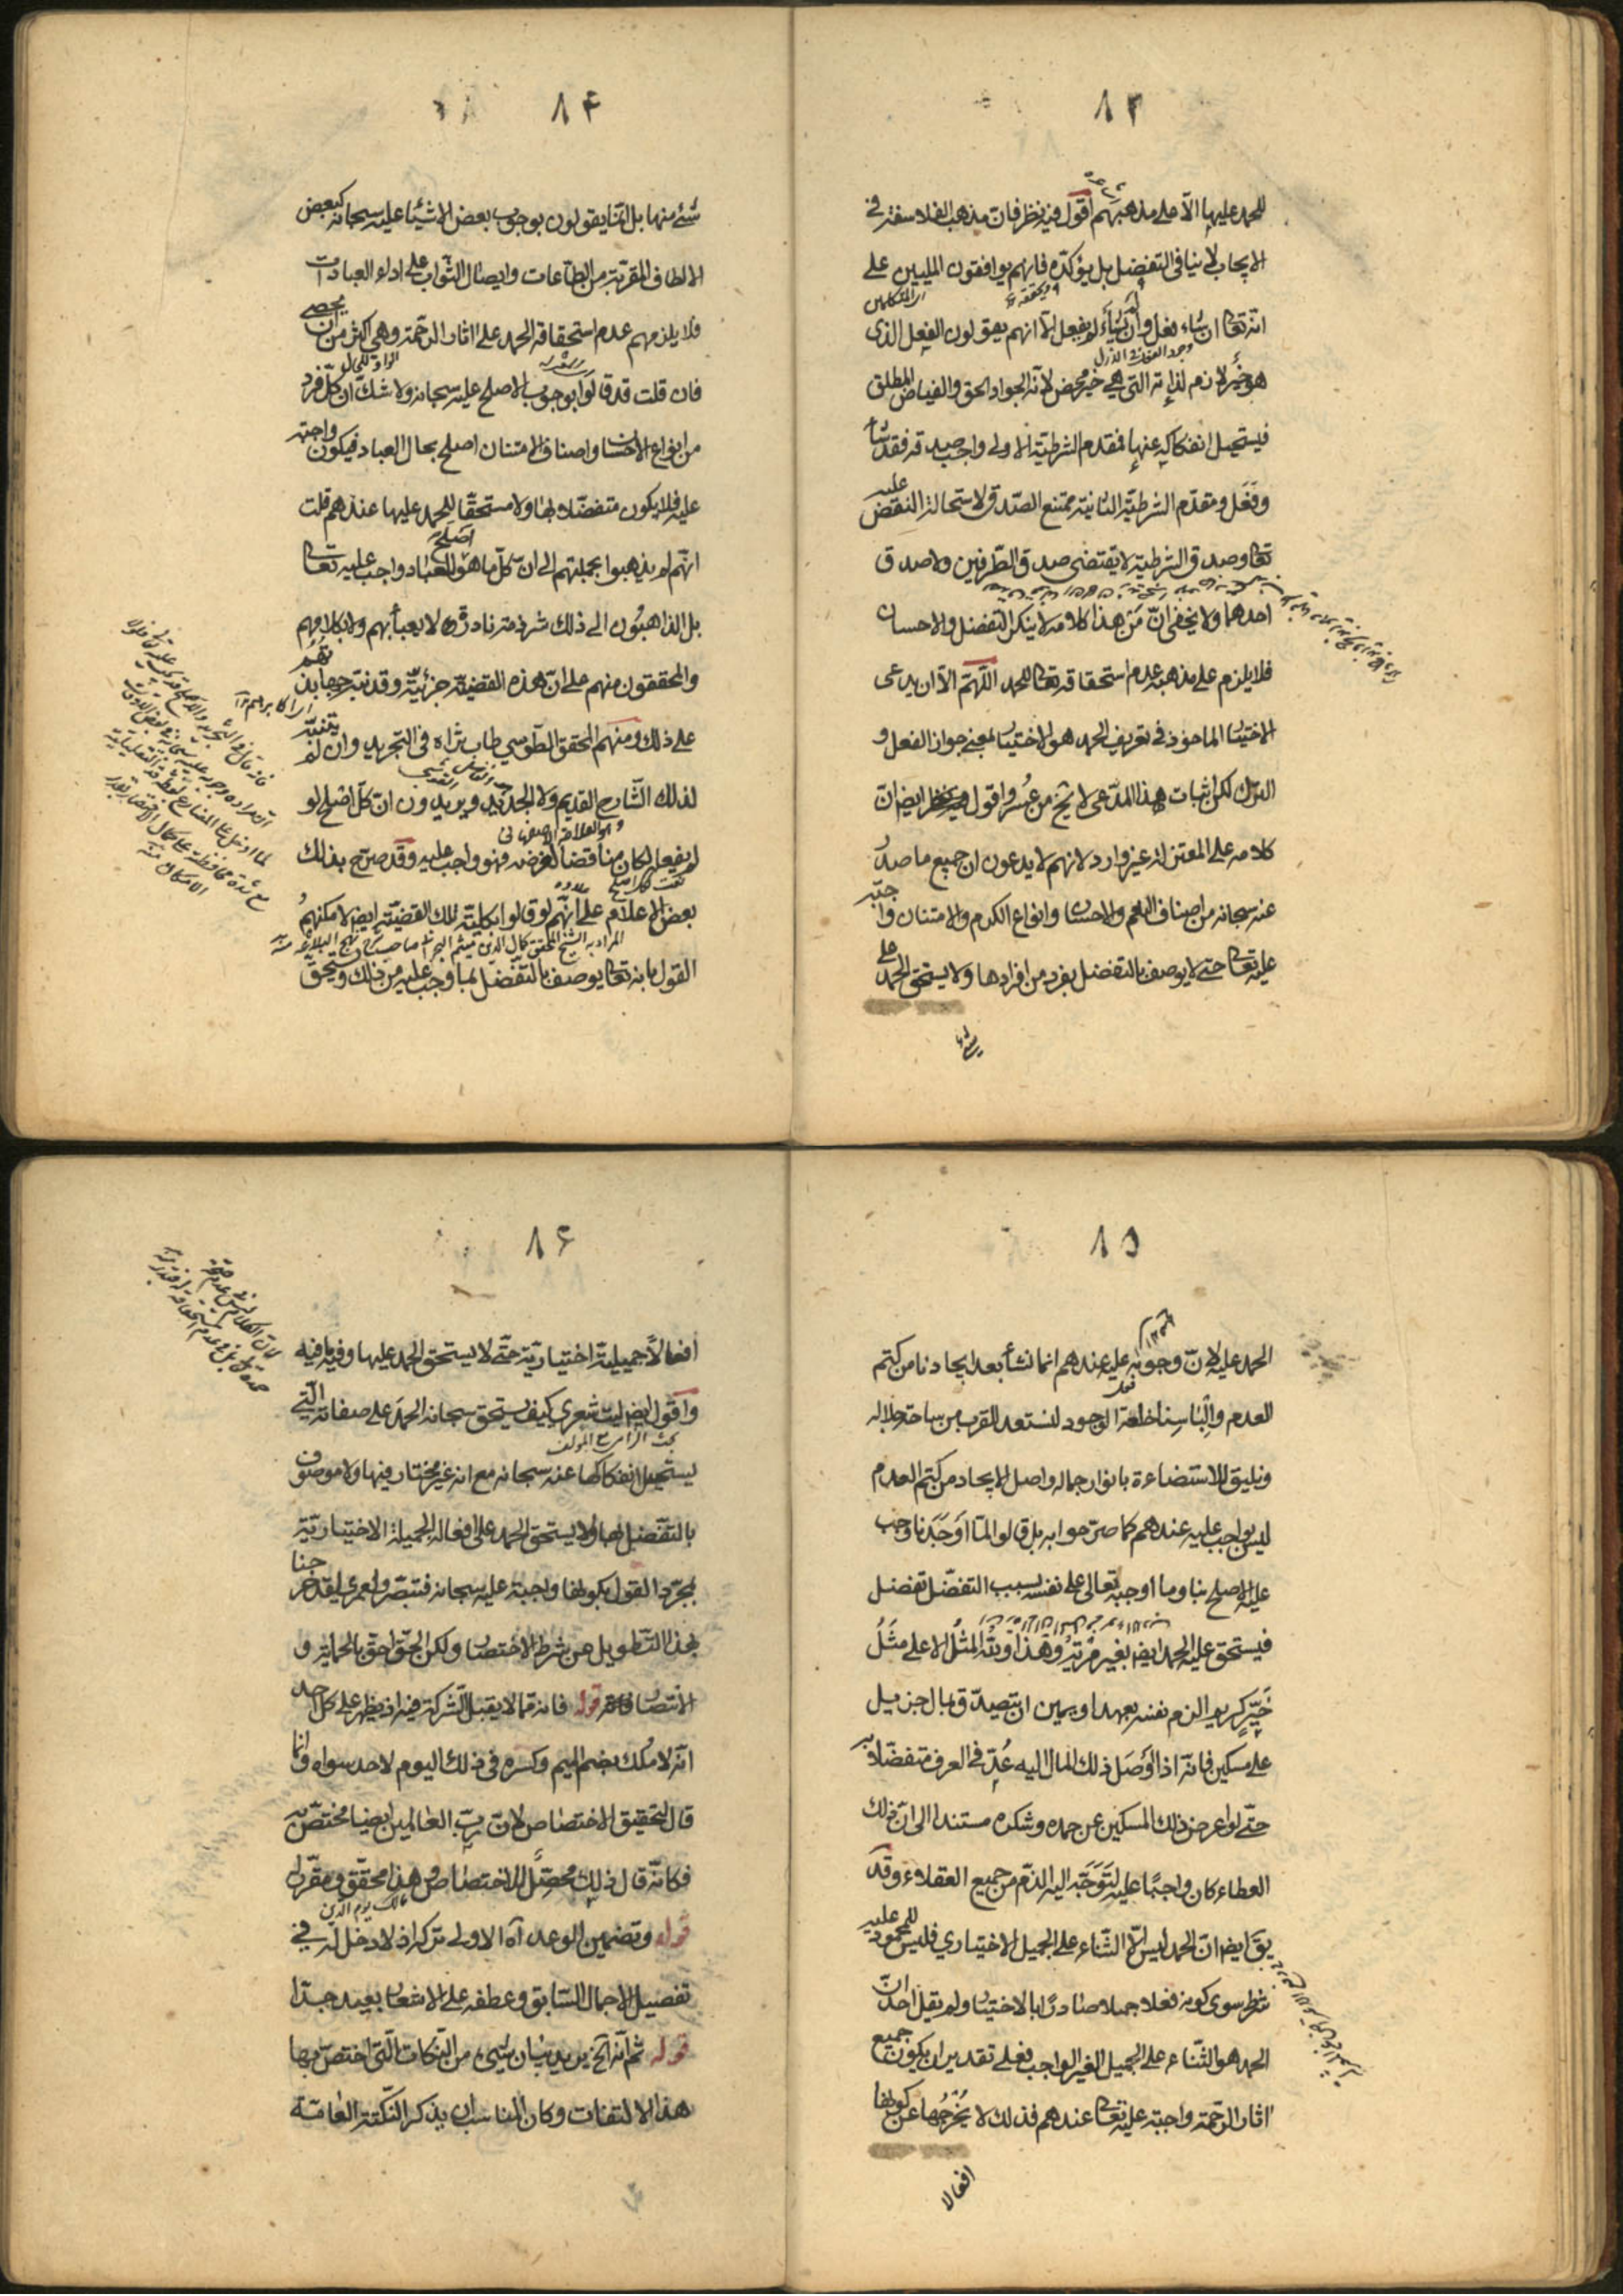 ٨٣
للحمد عليها الا على مذهبهم اقول فيه نظر فان مذهب الفلاسفة في
الايجاب لا ينافي التفضل بل يؤكده فانهم يوافقون المليين على
انه تعالى ان شاء فعل وان لم يشأ لم يفعل الا انهم يقولون الفعل الذي
هو خير لازم لذاته التي هي خير محض لانه الجواد الحق والفياض المطلق
فيستحيل انفكاكه عنها فمقدم الشرطية الاولى واجب صدقه فقد شاء
وفعل ومقدم الشرطية الثانية ممتنع الصدق لاستحالة النقص عليه
تعالى وصدق الشرطية لا يقتضي صدق الطرفين ولا صدق
احدهما ولا يخفى ان من هذا كلامه لا ينكر التفضل والاحسان
فلا يلزم على مذهبه عدم استحقاقه تعالى للحمد اللهم الا ان يدعى
الاختيار الماخوذ في تعريف الحمد هو الاختيار بمعنى جواز الفعل و
الترك لكن اثبات هذا المدعى لا يخ من عسر واقول فيه نظر ايضا ان
كلامه على المعتزلة غير وارد لانهم لا يدعون ان جميع ما صدر
عنه سبحانه من اصناف النعم والاحسان وانواع الكرم والامتنان واجبة
عليه تعالى حتى لا يوصف بالتفضل بفرد من افرادها ولا يستحق الحمد على
شئ
٨٤
شئ منها بل انما يقولون بوجوب بعض الاشياء عليه سبحانه كبعض
الالطاف المقربة من الطاعات وايصال الثواب على اداء العبادات
فلا يلزمهم عدم استحقاقه الحمد على اثار الرحمة وهي اكثر من ان يحصى
فان قلت قد قالوا بوجوب الاصلح عليه سبحانه ولا شك ان كل فرد
من انواع الاحسان واصناف الامتنان اصلح بحال العباد فيكون واجبة
عليه فلا يكون متفضلا بها ولا مستحقا للحمد عليها عندهم قلت
انهم لم يذهبوا بجملتهم الى ان كل ما هو اصلح للعباد واجب عليه تعالى
بل الذاهبون الى ذلك شرذمة نادرة لا يعبأ بهم ولا بكلامهم
والمحققون منهم على ان هذه القضية جزئية وقد نبه جهابذتهم
على ذلك ومنهم المحقق الطوسي طاب ثراه في التجريد وان لم يتنبه
لذلك الشارح القديم ولا الجديد ويريدون ان كل اصلح لو
لم يفعله لكان مناقضا لغرضه فهو واجب عليه وقد صرح بذلك
بعض الاعلام على انهم لو قالوا بكلية تلك القضية ايضا لامكنهم
المراد به الشيخ المحقق كمال الدين ميثم البحراني صاحب شرح نهج البلاغة منه
القول بانه تعالى يوصف بالتفضل بما وجب عليه من ذلك ويستحق
٨٥
الحمد عليه لان وجوبه عليه عندهم انما نشأ بعد ايجادنا من كتم
العدم والباسنا خلعة الوجود لنستعد القرب من ساحة جلاله
ونليق للاستضاءة بانوار جماله واصل الايجاد من كتم العدم
ليس بواجب عليه عندهم كما صرحوا به بل قالوا لما اوجدنا وجب
عليه الاصلح بنا وما اوجبه تعالى على نفسه بسبب التفضل تفضل
فيستحق عليه الحمد ايضا بغير مرية وهذا ولله المثل الاعلى مثل
خير كريم الزم نفسه بعهد او يمين ان يتصدق بمال جزيل
على مسكين فانه اذا اوصل ذلك المال اليه عد في العرف متفضلا به
حتى لو اعرض ذلك المسكين عن حمده وشكره مستندا الى ان ذلك
العطاء كان واجبا عليه لتوجه اليه الذم من جميع العقلاء وقد
يق ايضا ان الحمد ليس الا الثناء على الجميل الاختياري فليس للمحمود عليه
شطر سوى كونه فعلا جميلا صادرا بالاختيار ولم يقل احد ان
الحمد هو الثناء على الجميل الغير الواجب فعلى تقدير ان يكون جميع
اثار الرحمة واجبة عليه تعالى عندهم فذلك لا يخرجها عن كونها
افعالا
٨٦
افعالا جميلة اختيارية حتى لا يستحق الحمد عليها وفيه ما فيه
واقول ايضا ليت شعري كيف يستحق سبحانه الحمد على صفاته التي
يستحيل انفكاكها عنه سبحانه مع انه غير مختار فيها ولا موصوف
بالتفضل بها ولا يستحق الحمد على افعاله الجميلة الاختيارية
بمجرد القول بكونها واجبة عليه سبحانه فتبصر ولعمري لقد خرجنا
بهذا التطويل عن شرط الاختصار ولكن الحق احق بالحماية و
الانتصار قوله فانه مما لا يقبل الشركة فيه اذ يظهر على كل احد
انه لا ملك بضم الميم وكسره في ذلك اليوم لاحد سواه وانما
قال لتحقيق الاختصاص لان رب العالمين ايضا مختص به
فكانه قال ذلك محصل للاختصاص وهذا محقق ومقرر له
مالك يوم الدين
قوله وتضمين الوعد آه الاولى تركه اذ لا دخل له في
تفصيل الاجمال السابق وعطفه على الاشعار بعيد جدا
قوله ثم انه آلخ يريد بيان شيء من النكات التي اختص بها
هذا الالتفات وكان المناسب ان يذكر النكتة العامة